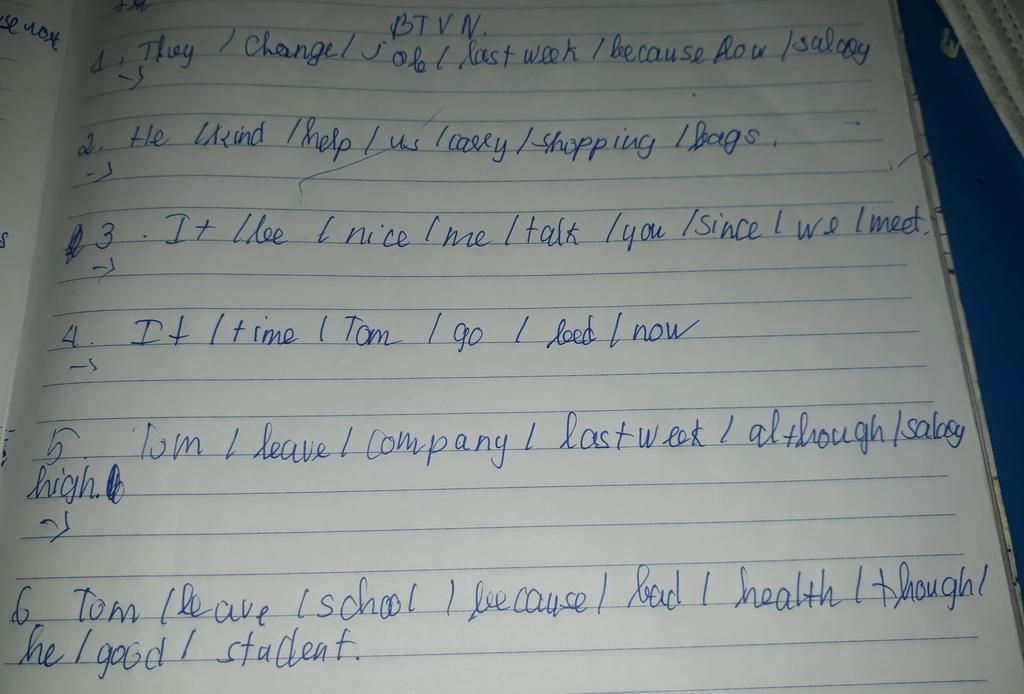 BTVN.
1. They / Change / job / last week / because low / salary
->
2. He / kind / help / us / carry / shopping / bags.
->
3. It / be / nice / me / talk / you / since / we / meet.
->
4. It / time / Tom / go / bed / now
->
5. Tom / leave / company / last week / although / salary
high.
->
6. Tom / leave / school / because / bad / health / though /
he / good / student.